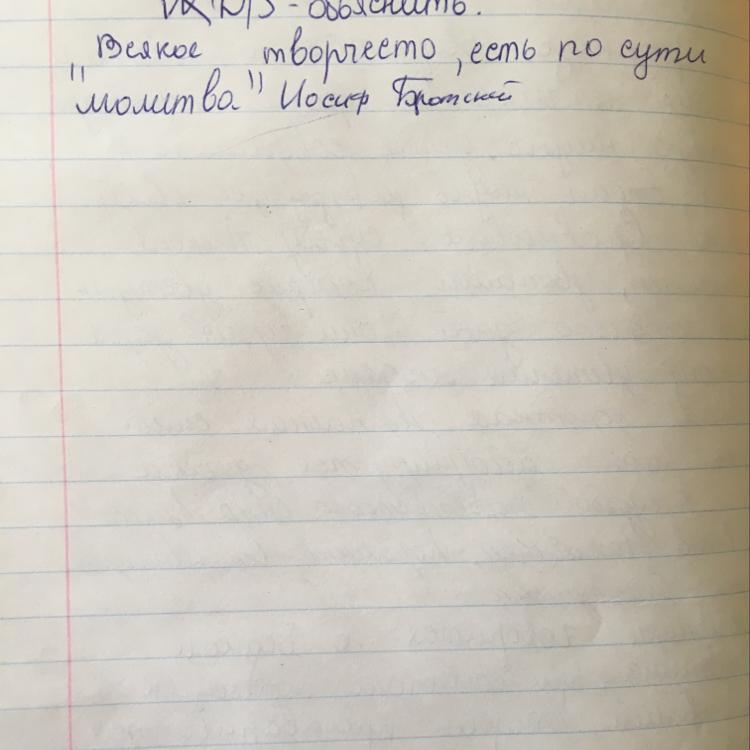 Д/З - объяснить.
"Всякое творчесто, есть по сути
молитва" Иосиф Бротский